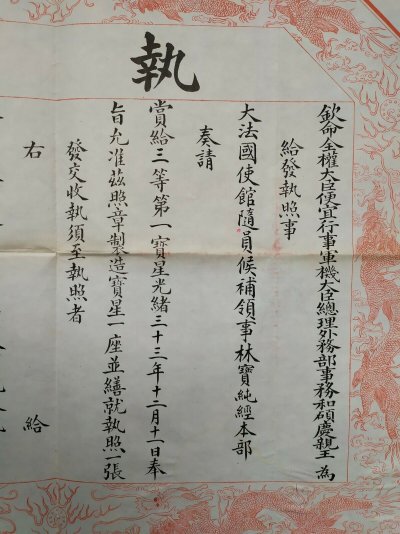 執
欽命全權大臣便宜行事軍機大臣總理外務部事務和碩慶親王為
給發執照事
大法國使館隨員候補領事林寶純經本部
奏請
賞給三等第一寶星光緒三十三年十二月十一日奉
旨允准茲照章製造寶星一座並繕就執照一張
發交收執須至執照者
右 給